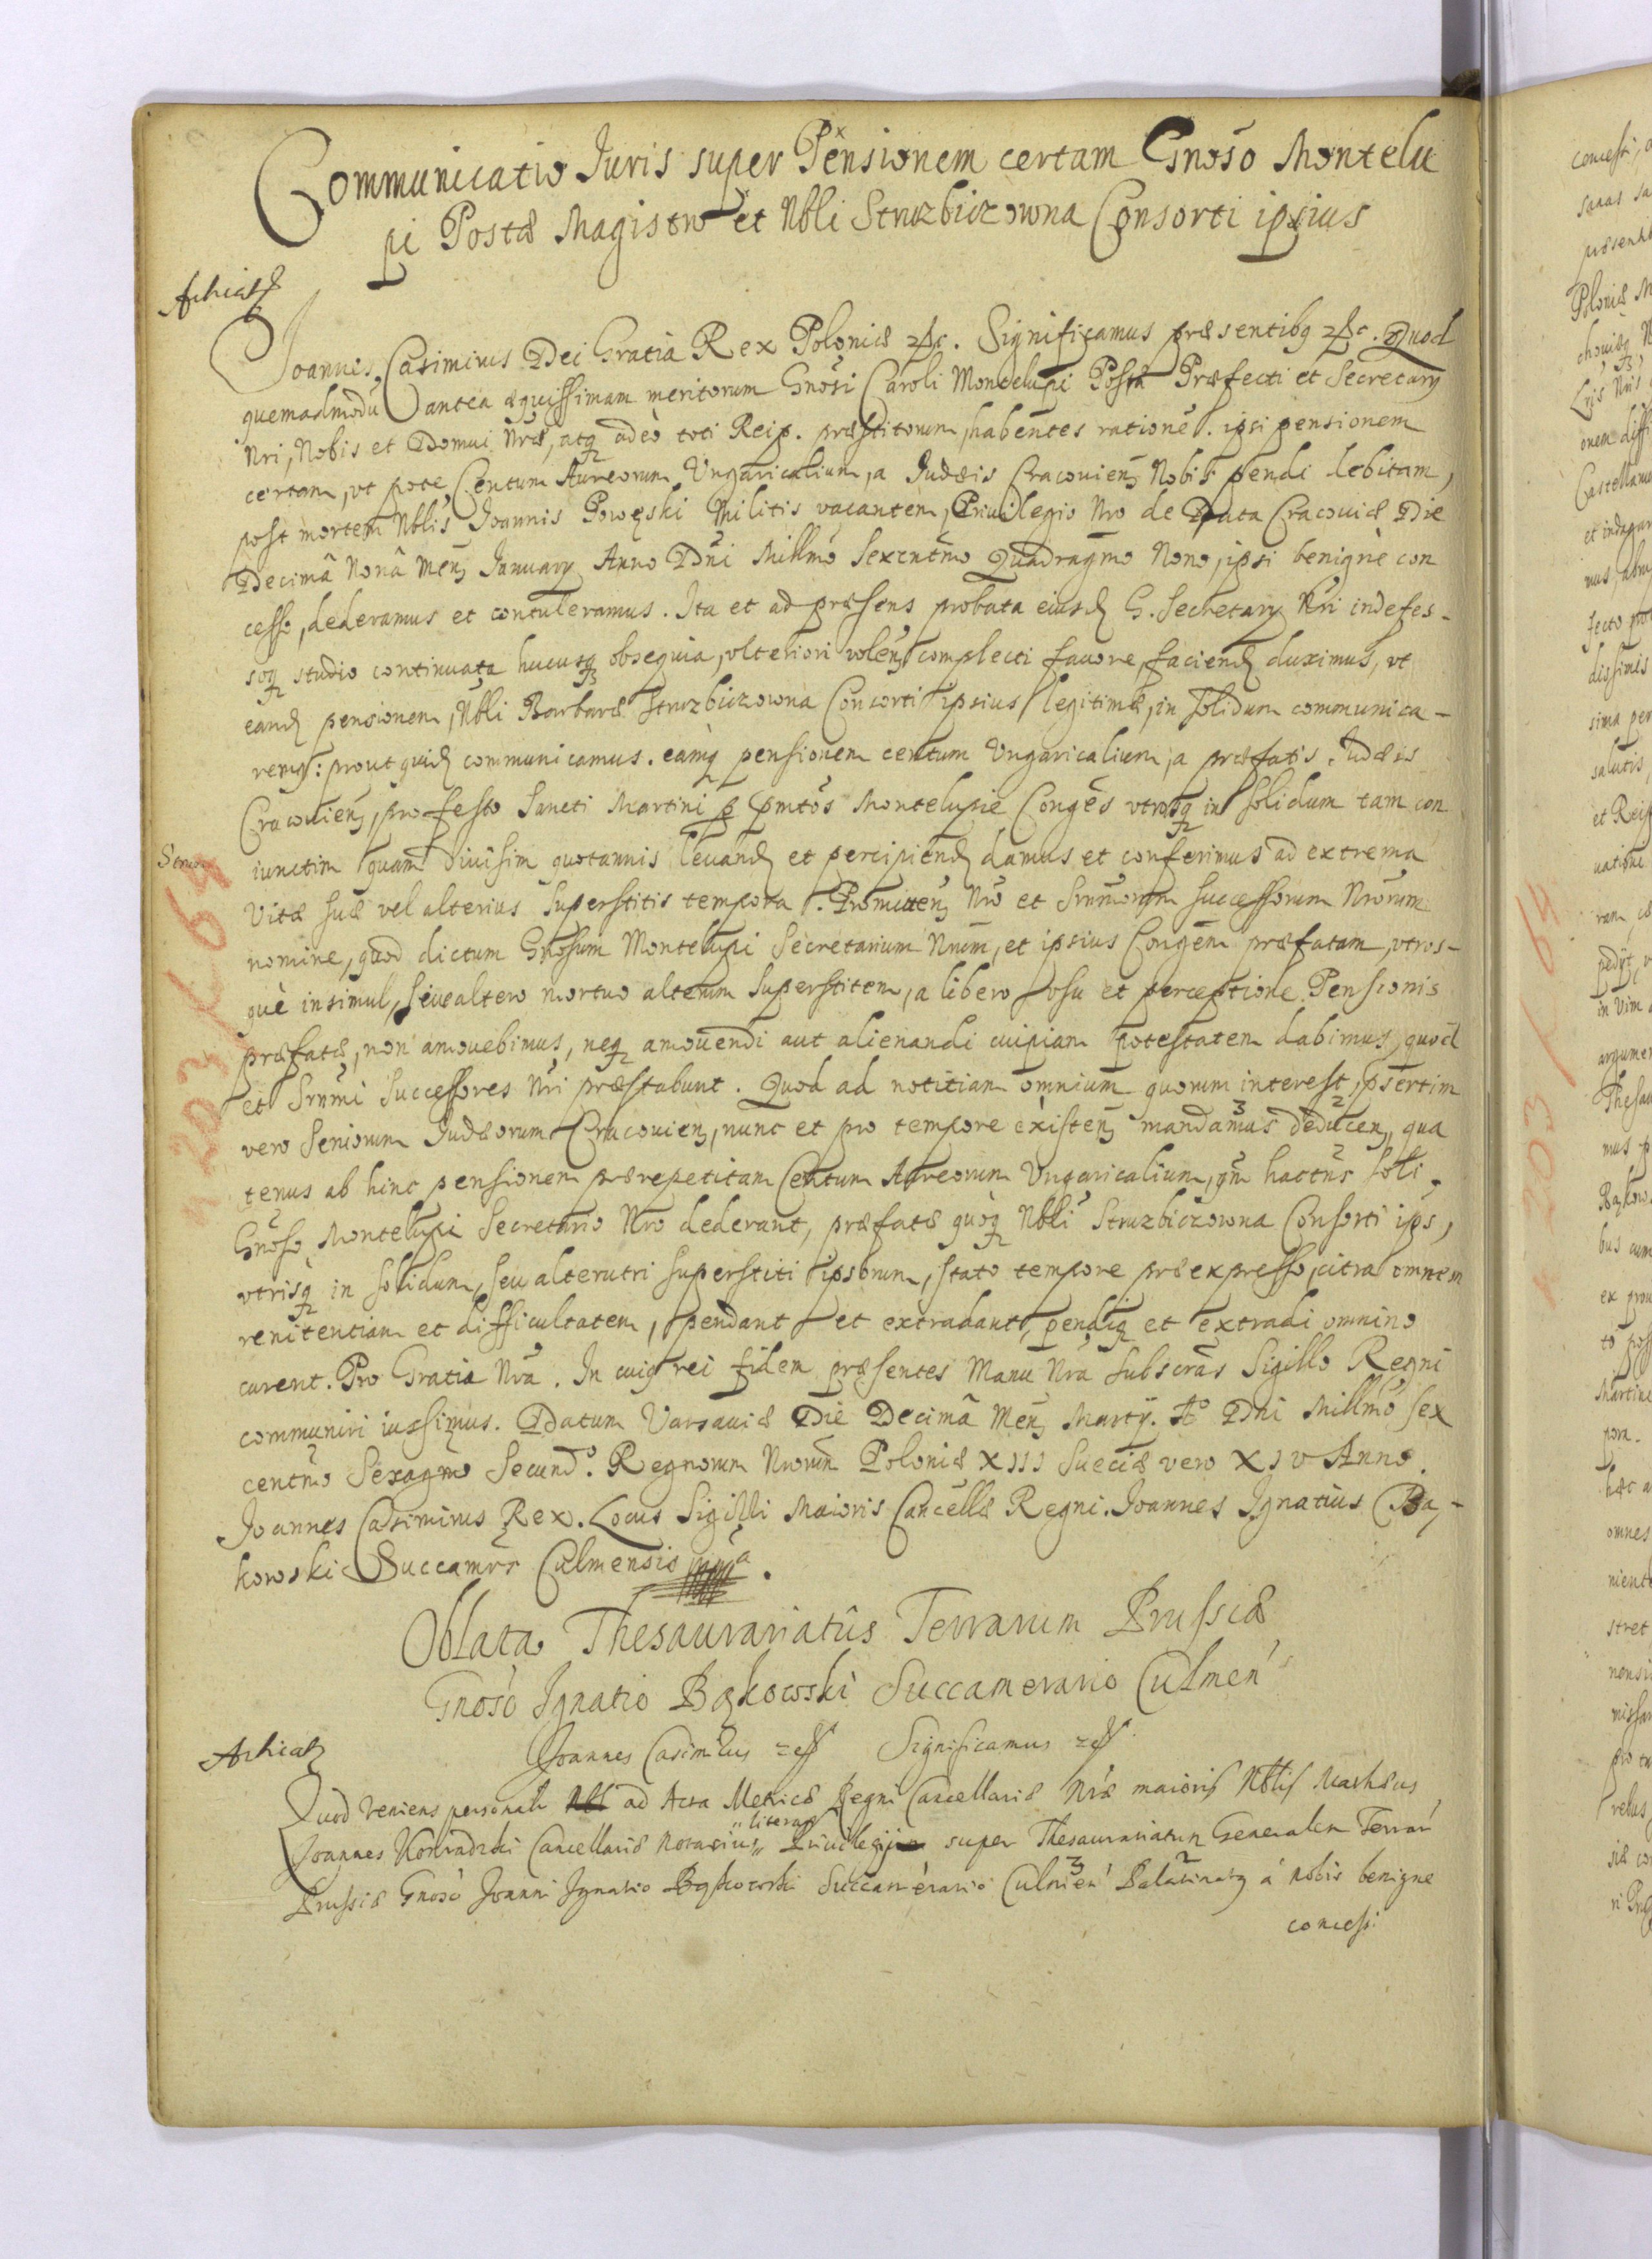 Communicatio Juris super Pensionem certam Gnoso Montelu
pi Postæ Magistro et Nbli Struzbiczowna Consorti ipsius
Joannes Casimirus Dei Gratia Rex Poloniæ etc. Significamus præsentibq etc. Quod
quemadmodū antea æquissimam meritorum Gnosi Caroli Montelupi Postæ Præfecti et Secretarij
Nri, Nobis et Domui Nræ, atq adeò toti Reip. præstitorum, habentes rationē. ipsi pensionem
certam, vt pote, Centum Aureorum Ungaricalium, a Judæis Cracouien Nobis pendi debitam,
post mortem Nblis Joannis Powęski Militis vacantem, Priuilegio Nro de Data Cracouiæ Die
Decimâ Nonâ Men January Anno Dñi Millmo Sexcntmo Quadragmo Nono, ipsi benignè con
cesso, dederamus et contuleramus. Ita et ad præsens probata eiusd G. Secretary Nri indefes-
soq studio continuata hucusq obsequia, vlteriori volen complecti fauore, faciend duximus, vt
eand pensionem, Nbli Barbaræ Struzbiczowna Consorti ipsius legitimæ, in solidum communica-
remq: prout quid communicamus. eamq pensionem centum Ungaricalium, a præfatis Judæis
Cracouien, pro festo Sancti Martini p pmtos Montelupie Conges vtrosq in solidum tam con
iunctim quam diuisim quotannis leuand et percipiend damus et conferimus ad extrema
Vitæ suæ vel alterius superstitis tempora. Promitten Nro et Srnmorum successorum Nrorum
nomine, quod dictum Gnosum Montelupi Secretarium Nrum, et ipsius Congem præfatam, vtros-
què insimul, siue altero mortuo alterum superstitem, a libero vsu et perceptione Pensionis
præfatæ, non amouebimus, neq amouendi aut alienandi cuipiam potestatem dabimus, quod
et Srnmi Successores Nri præstabunt. Quod ad notitiam omnium quorum interest, psertim
vero Seniorum Judæorum Cracouien, nunc et pro tempore existen mandamus deducen, qua
tenus ab hinc pensionem prærepetitam Centum Aureorum Ungaricalium, qm hactns soli
Gnoso Montelupi Secretario Nro dederant, præfatæ quoq Nbli Struzbiczowna Consorti ips,
vtrisq in solidum, seu alterutri superstiti ipsorum, stato tempore præexpresso, citra omnem
renitentiam et difficultatem, pendant et extradant, pendiq et extradi omnino
curent. Pro Gratia Nra. In cuiq rei fidem præsentes Manu Nra subscras Sigillo Regni
communiri iussimus. Datum Varsauiæ Die Decimâ Men Martij. Ao Dni Millmo sex
centmo Sexagmo Secundo. Regnorum Nrorum Poloniæ XIII Sueciæ vero XIV Anno.
Joannes Casimirus Rex. Locus Sigilli Maioris Cancellæ Regni. Joannes Ignatius Bą-
kowski Succamrs Culmensis mma.
Oblata Thesaurariatûs Terrarum Prussiæ
Gnoso Ignatio Bąkowski Succamerario Culmen
Joannes Casimirus etc Significamus etc
Quod veniens personalr ad Acta Metricæ Regni Cancellariæ Nræ maioris Nblis Mathæus
„literas
Joannes Konradzki Cancellariæ Notarius„ Priuilegij super Thesaurariatum Generalem Terrar
Prussiæ Gnoso Joanni Ignatio Bąkowski Succamerario Culmen Palatinatq à Nobis benigne
concessi